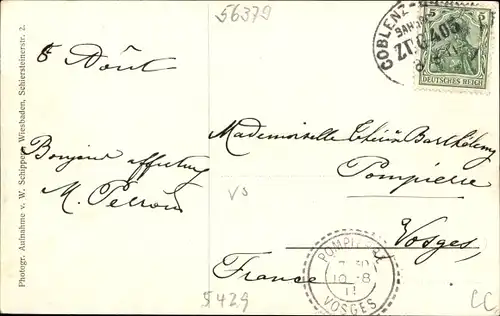 56379
8 Août
Bonjour affectueux
M. Perron
Photogr. Aufnahme v. W. Schipper, Wiesbaden, Schiersteinerstr. 2.
COBLENZ
BAHNPOST
ZUG 405
5 5
DEUTSCHES REICH
Mademoiselle Barthélemy
Pompierre
Vosges,
France
VS
POMPIERRE
10-8
11
VOSGES
5429
CC